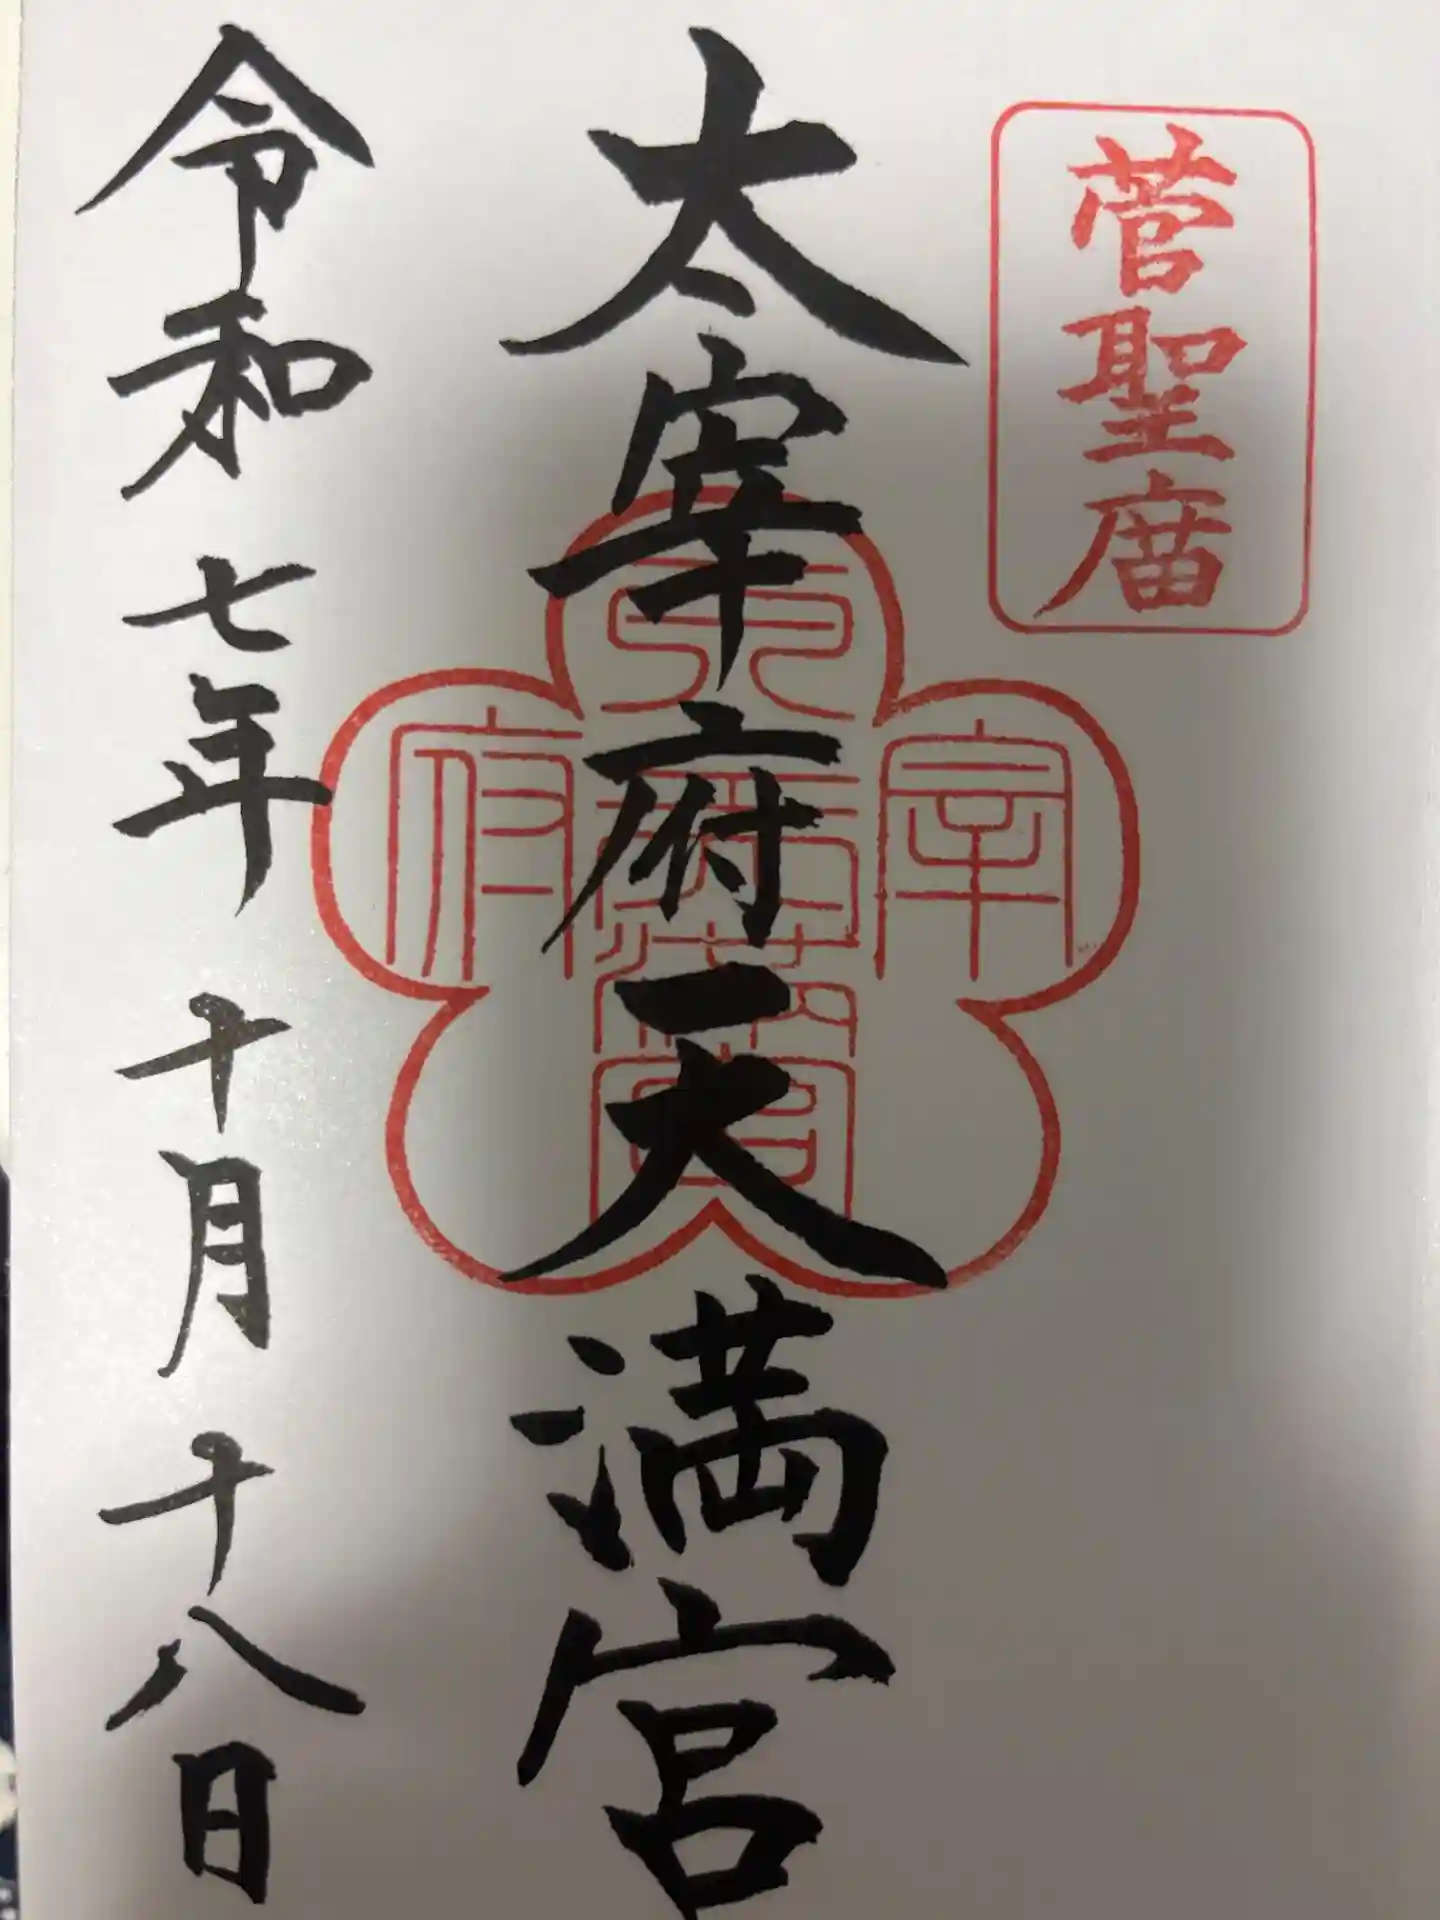 菅聖庿
太宰府天満宮
太
宰
府
天満宮
令和七年十月十八日